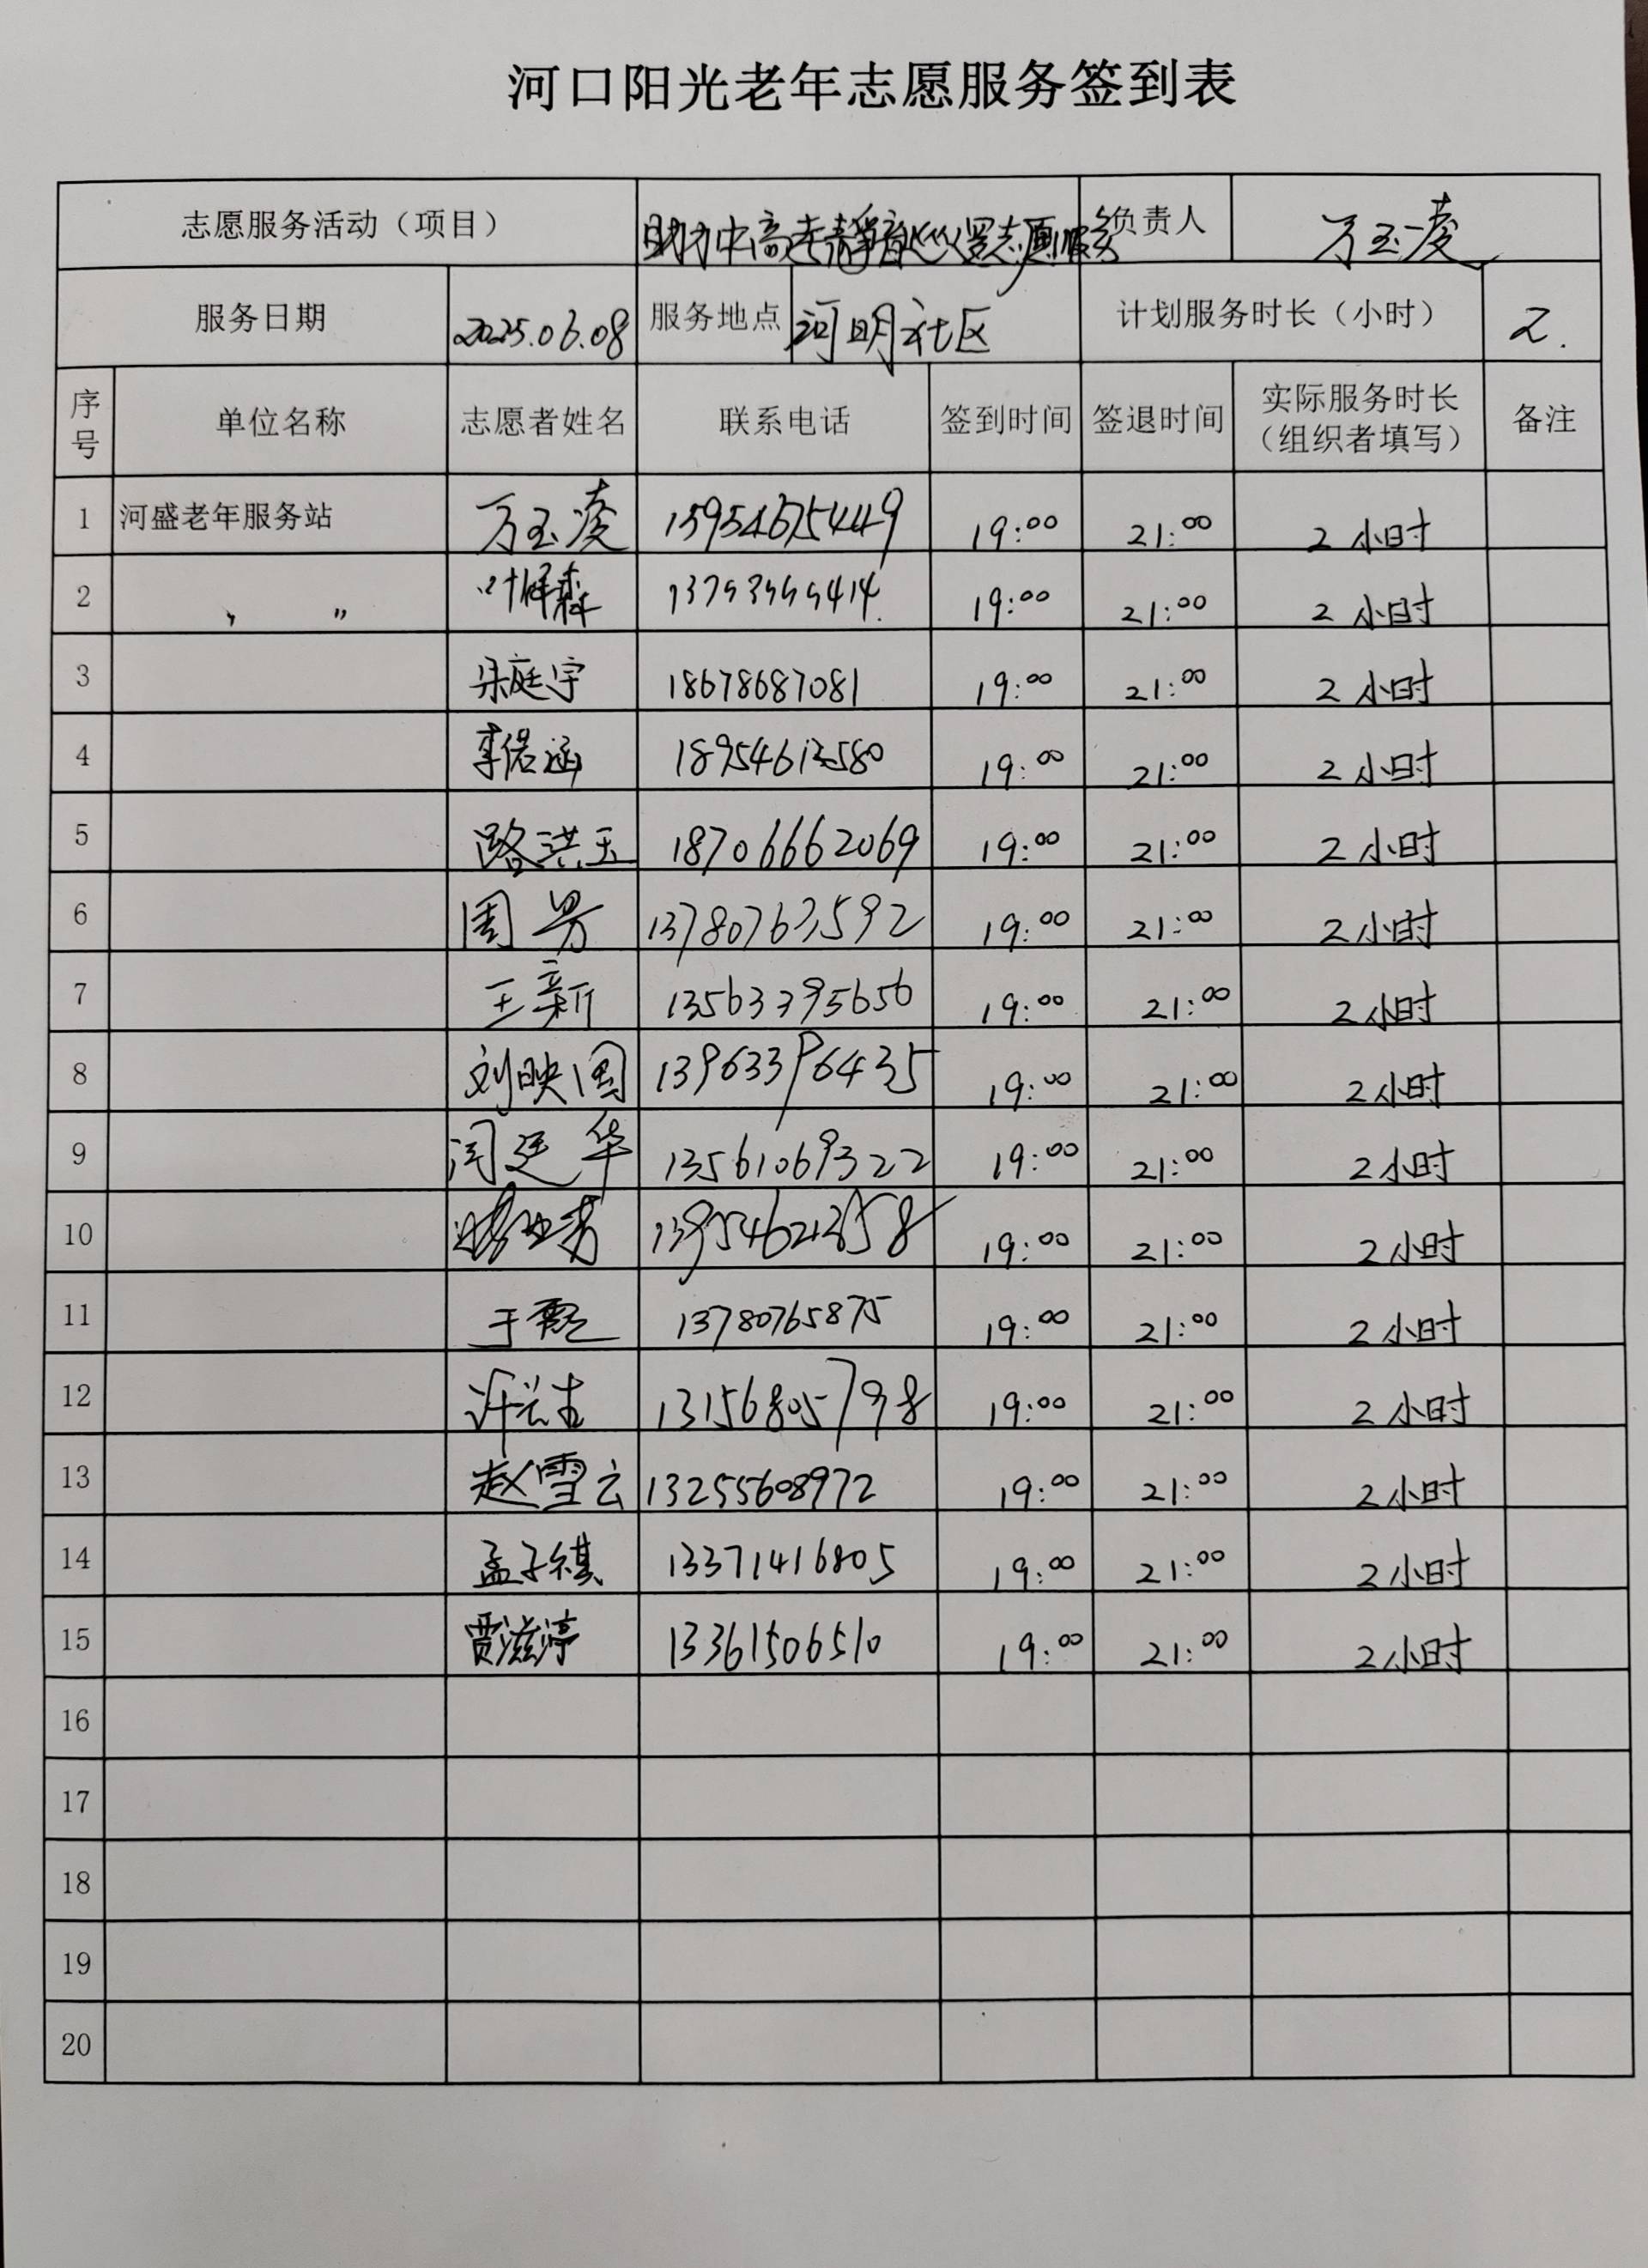 河口阳光老年志愿服务签到表
志愿服务活动（项目） 助力中高考静音巡逻志愿服务 负责人 万玉凌
服务日期 2025.06.08 服务地点 河明社区 计划服务时长（小时） 2.
序号 单位名称 志愿者姓名 联系电话 签到时间 签退时间 实际服务时长（组织者填写） 备注
1 河盛老年服务站 万玉凌 13954675449 19:00 21:00 2小时
2 〃 19:00 21:00 2小时
3 18678687081 19:00 21:00 2小时
4 李偌涵 19:00 21:00 2小时
5 路洪玉 18706662069 19:00 21:00 2小时
6 周男 13780763592 19:00 21:00 2小时
7 王新 13563395656 19:00 21:00 2小时
8 刘映国 13963396435 19:00 21:00 2小时
9 闫廷华 13561069322 19:00 21:00 2小时
10 19:00 21:00 2小时
11 13780765875 19:00 21:00 2小时
12 13156805798 19:00 21:00 2小时
13 赵雪云 13255608972 19:00 21:00 2小时
14 孟子祺 13371416805 19:00 21:00 2小时
15 贾滋渟 13361506510 19:00 21:00 2小时
16
17
18
19
20